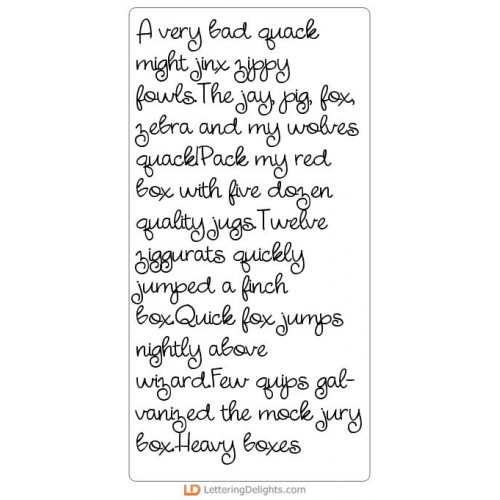 A very bad quack
might jinx zippy
fowls.The jay, pig, fox,
zebra and my wolves
quack!Pack my red
box with five dozen
quality jugs.Twelve
ziggurats quickly
jumped a finch
box.Quick fox jumps
nightly above
wizard.Few quips gal-
vanized the mock jury
box.Heavy boxes
LD LetteringDelights.com